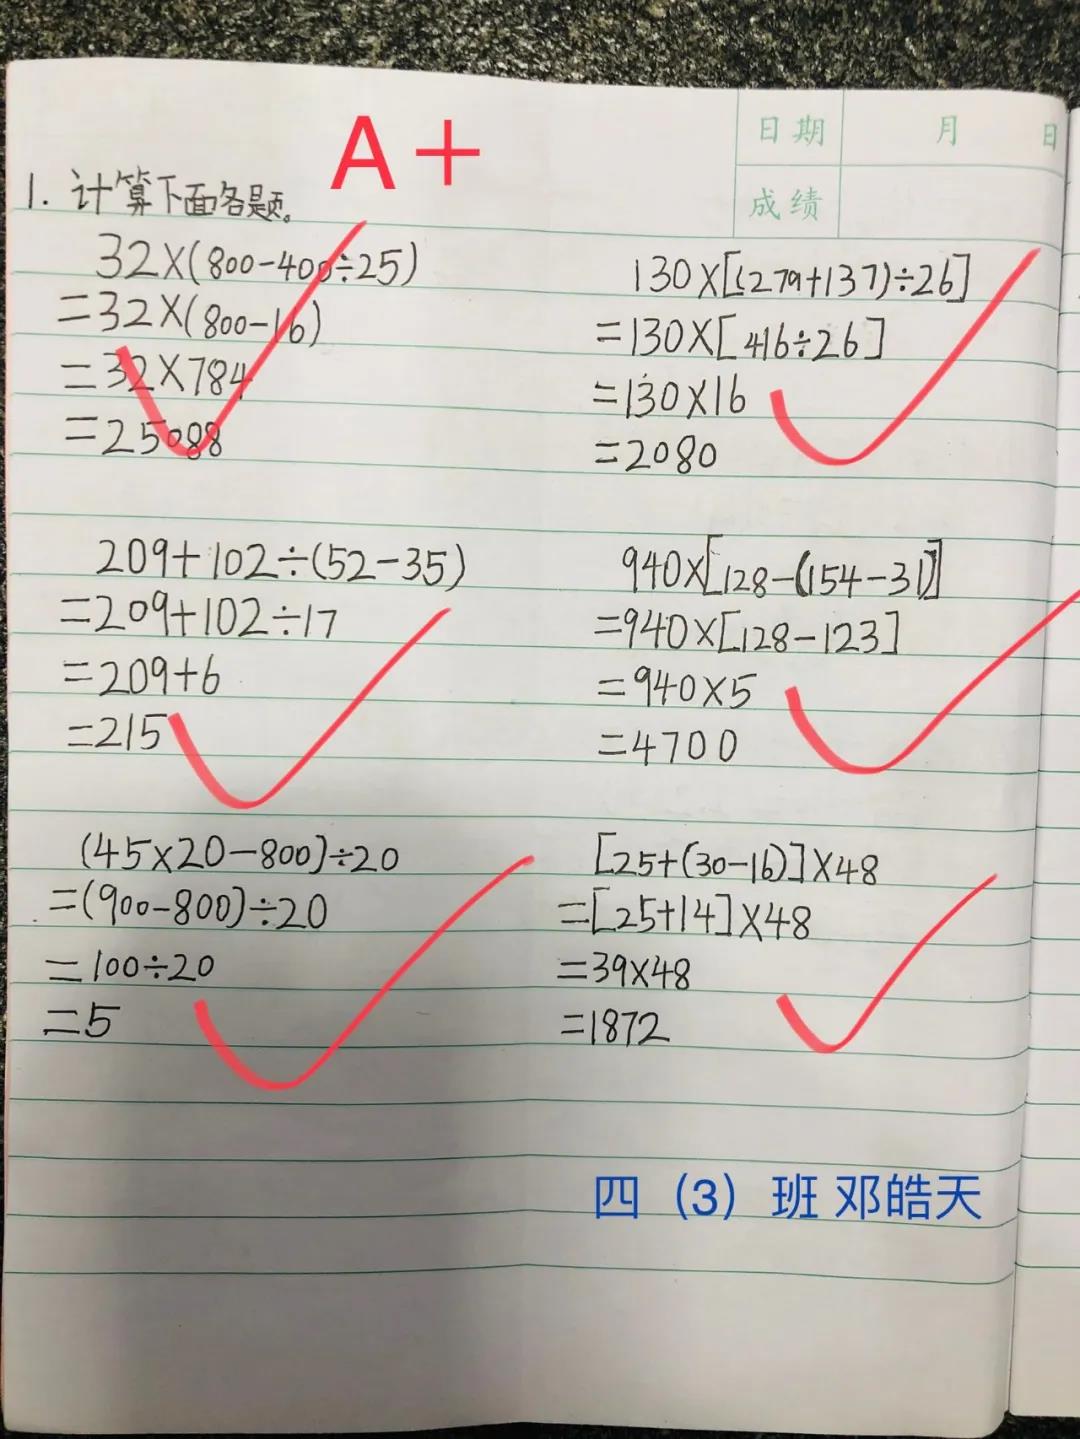 A+
日期 月 日
成绩
1. 计算下面各题。
32×(800-400÷25)
=32×(800-16)
=32×784
=25088
130×[(279+137)÷26]
=130×[416÷26]
=130×16
=2080
209+102÷(52-35)
=209+102÷17
=209+6
=215
940×[128-(154-31)]
=940×[128-123]
=940×5
=4700
(45×20-800)÷20
=(900-800)÷20
=100÷20
=5
[25+(30-16)]×48
=[25+14]×48
=39×48
=1872
四（3）班 邓皓天